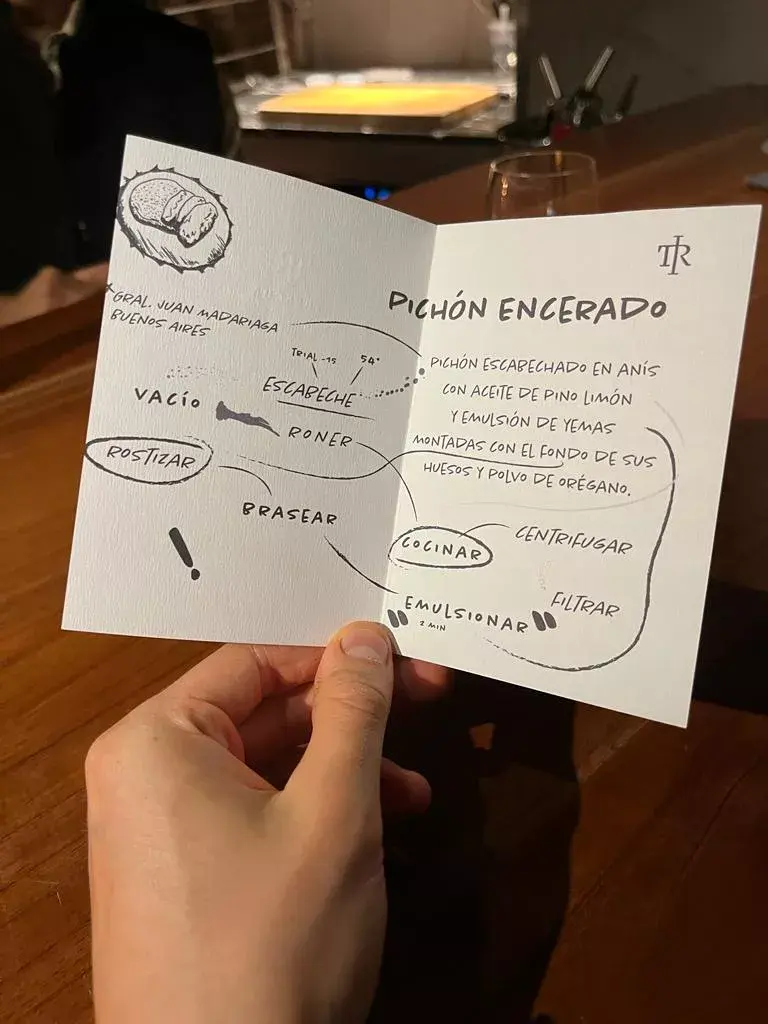 GRAL. JUAN MADARIAGA
BUENOS AIRES
TRIAL -15
54°
ESCABECHE
VACÍO
RONER
ROSTIZAR
BRASEAR
!
TIR
PICHÓN ENCERADO
PICHÓN ESCABECHADO EN ANÍS
CON ACEITE DE PINO LIMÓN
Y EMULSIÓN DE YEMAS
MONTADAS CON EL FONDO DE SUS
HUESOS Y POLVO DE ORÉGANO.
COCINAR
CENTRIFUGAR
FILTRAR
"EMULSIONAR"
2 MIN